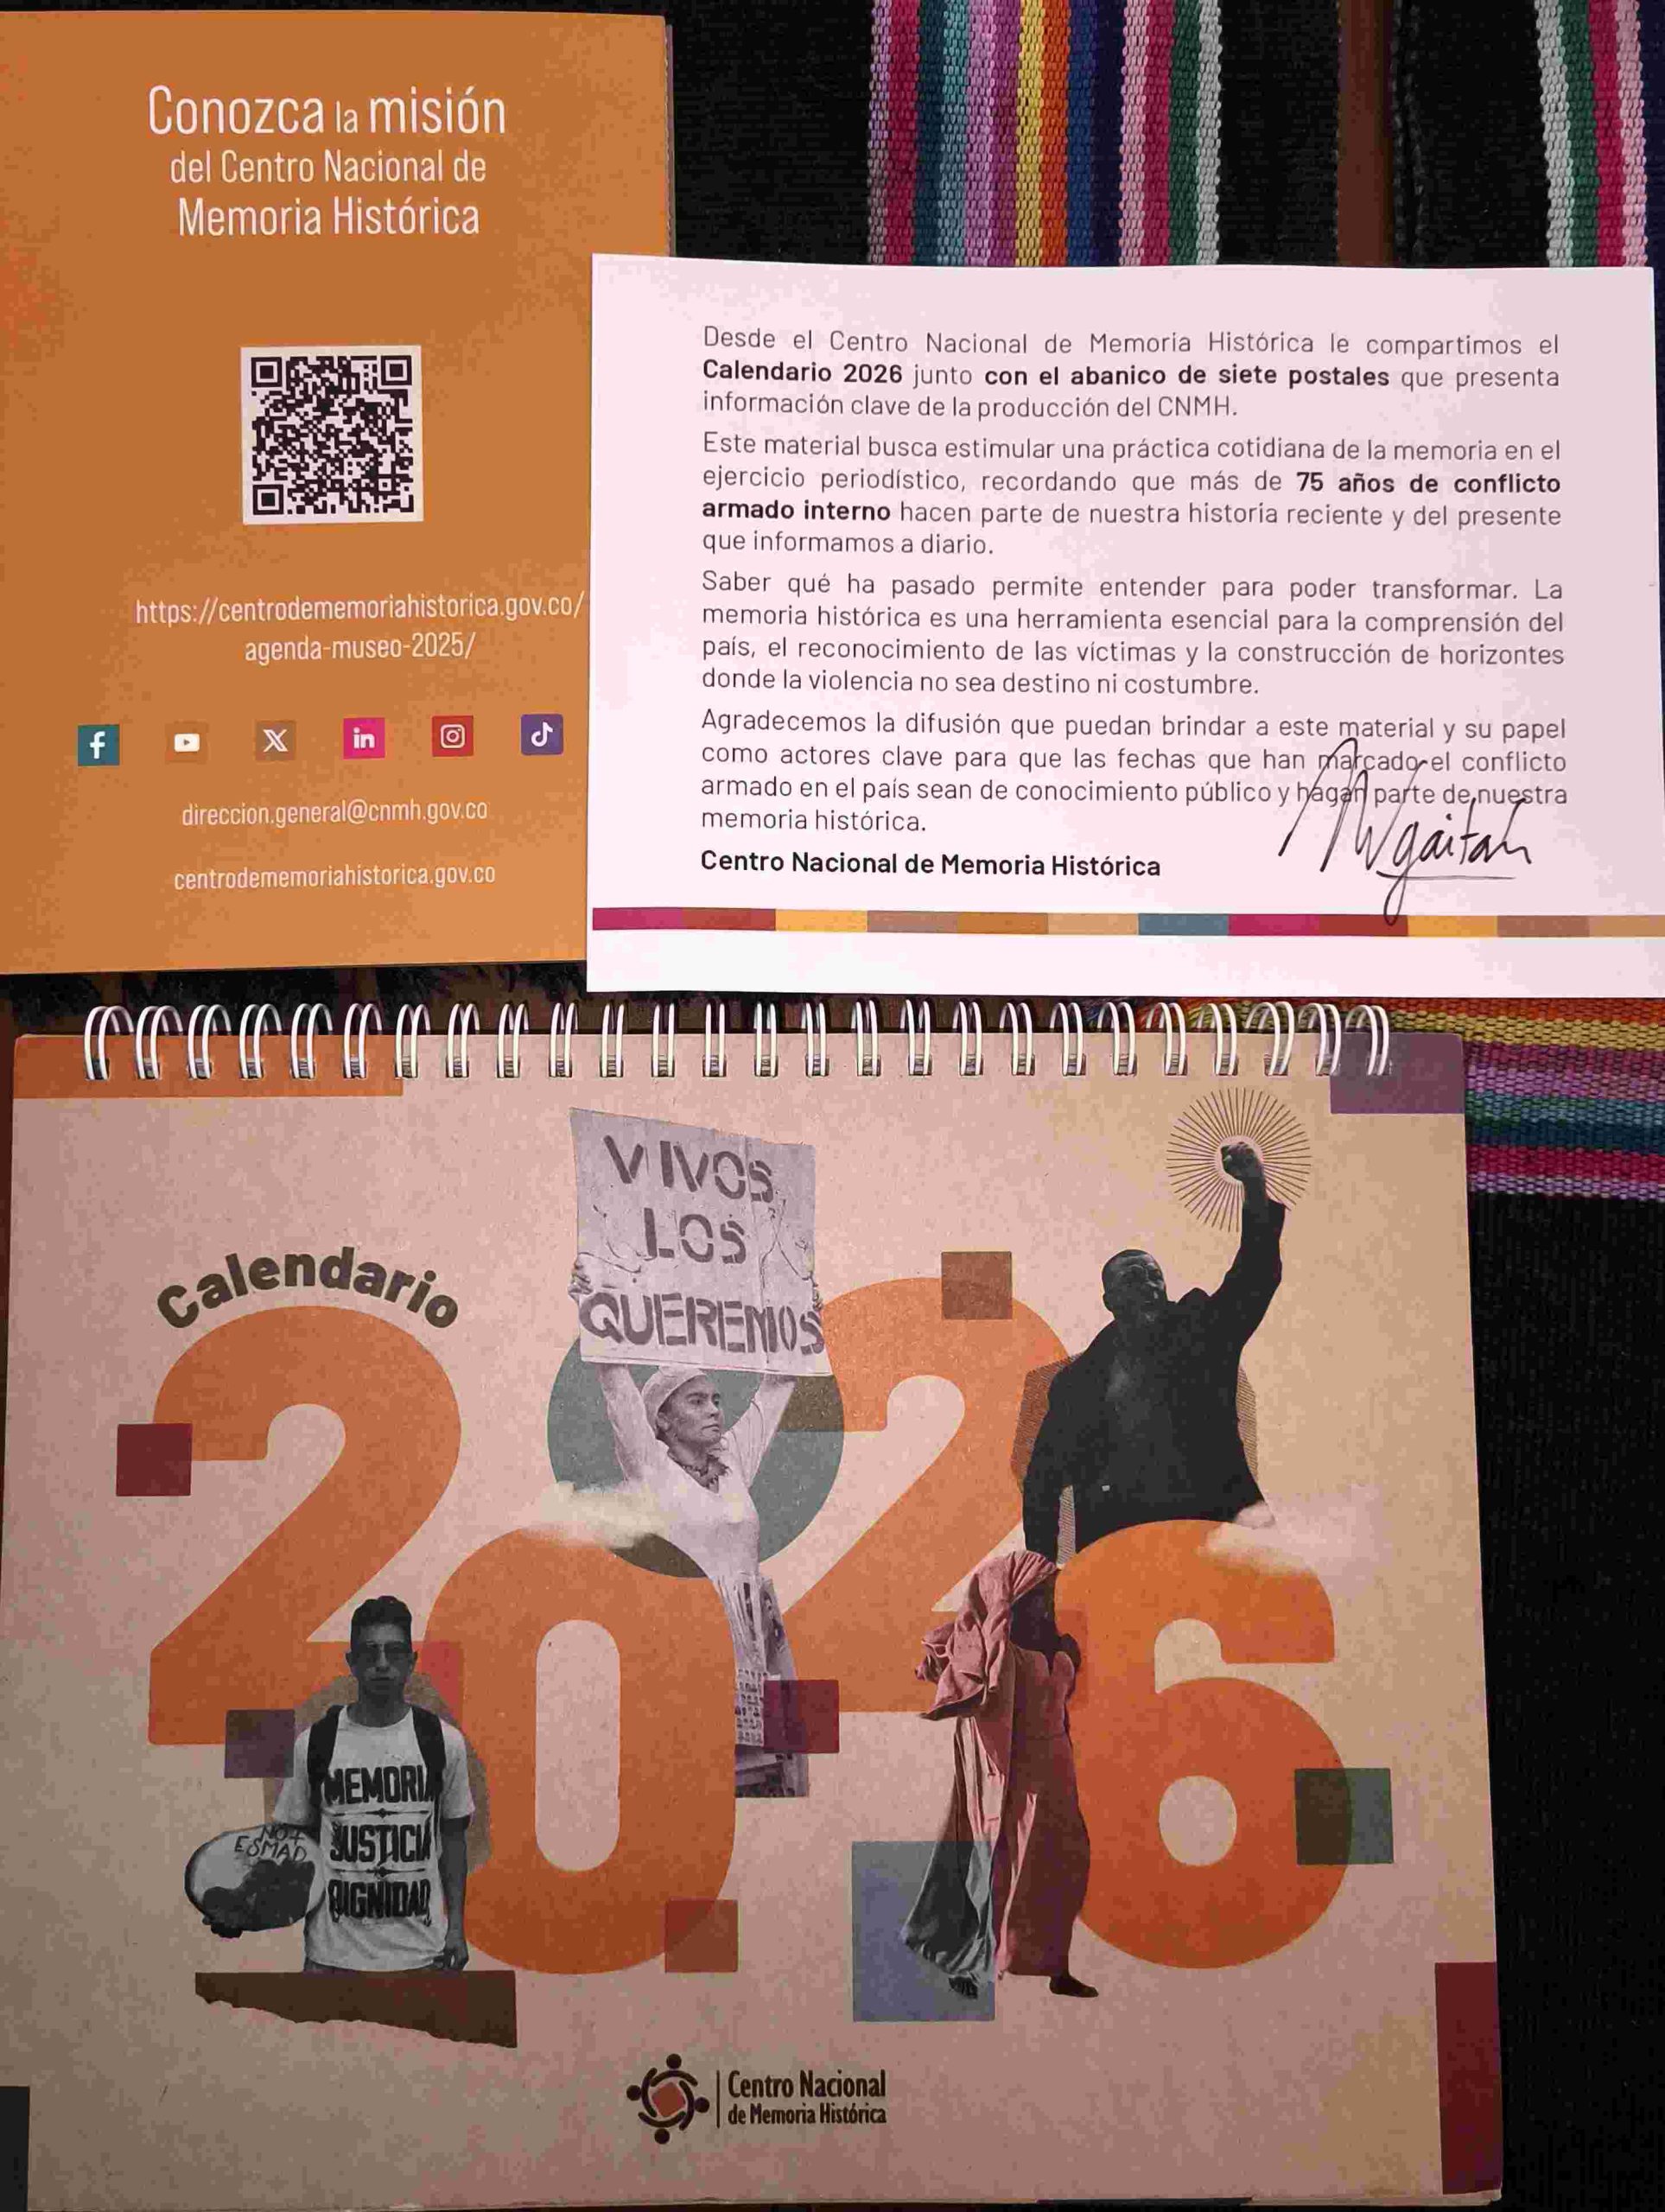 Conozca la misión
del Centro Nacional de
Memoria Histórica
https://centrodememoriahistorica.gov.co/
agenda-museo-2025/
direccion.general@cnmh.gov.co
centrodememoriahistorica.gov.co
Desde el Centro Nacional de Memoria Histórica le compartimos el
Calendario 2026 junto con el abanico de siete postales que presenta
información clave de la producción del CNMH.
Este material busca estimular una práctica cotidiana de la memoria en el
ejercicio periodístico, recordando que más de 75 años de conflicto
armado interno hacen parte de nuestra historia reciente y del presente
que informamos a diario.
Saber qué ha pasado permite entender para poder transformar. La
memoria histórica es una herramienta esencial para la comprensión del
país, el reconocimiento de las víctimas y la construcción de horizontes
donde la violencia no sea destino ni costumbre.
Agradecemos la difusión que puedan brindar a este material y su papel
como actores clave para que las fechas que han marcado el conflicto
armado en el país sean de conocimiento público y hagan parte de nuestra
memoria histórica.
Centro Nacional de Memoria Histórica
Calendario
2026
VIVOS
LOS
QUEREMOS
MEMORIA
JUSTICIA
DIGNIDAD
ESMAD
Centro Nacional
de Memoria Histórica